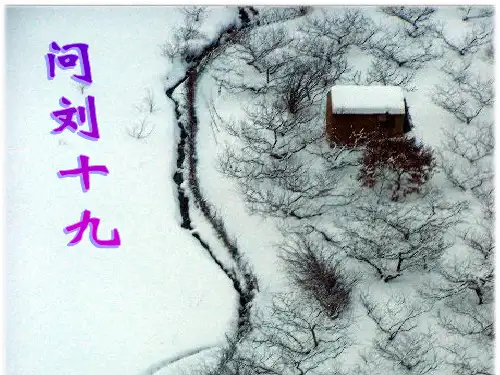 问刘十九